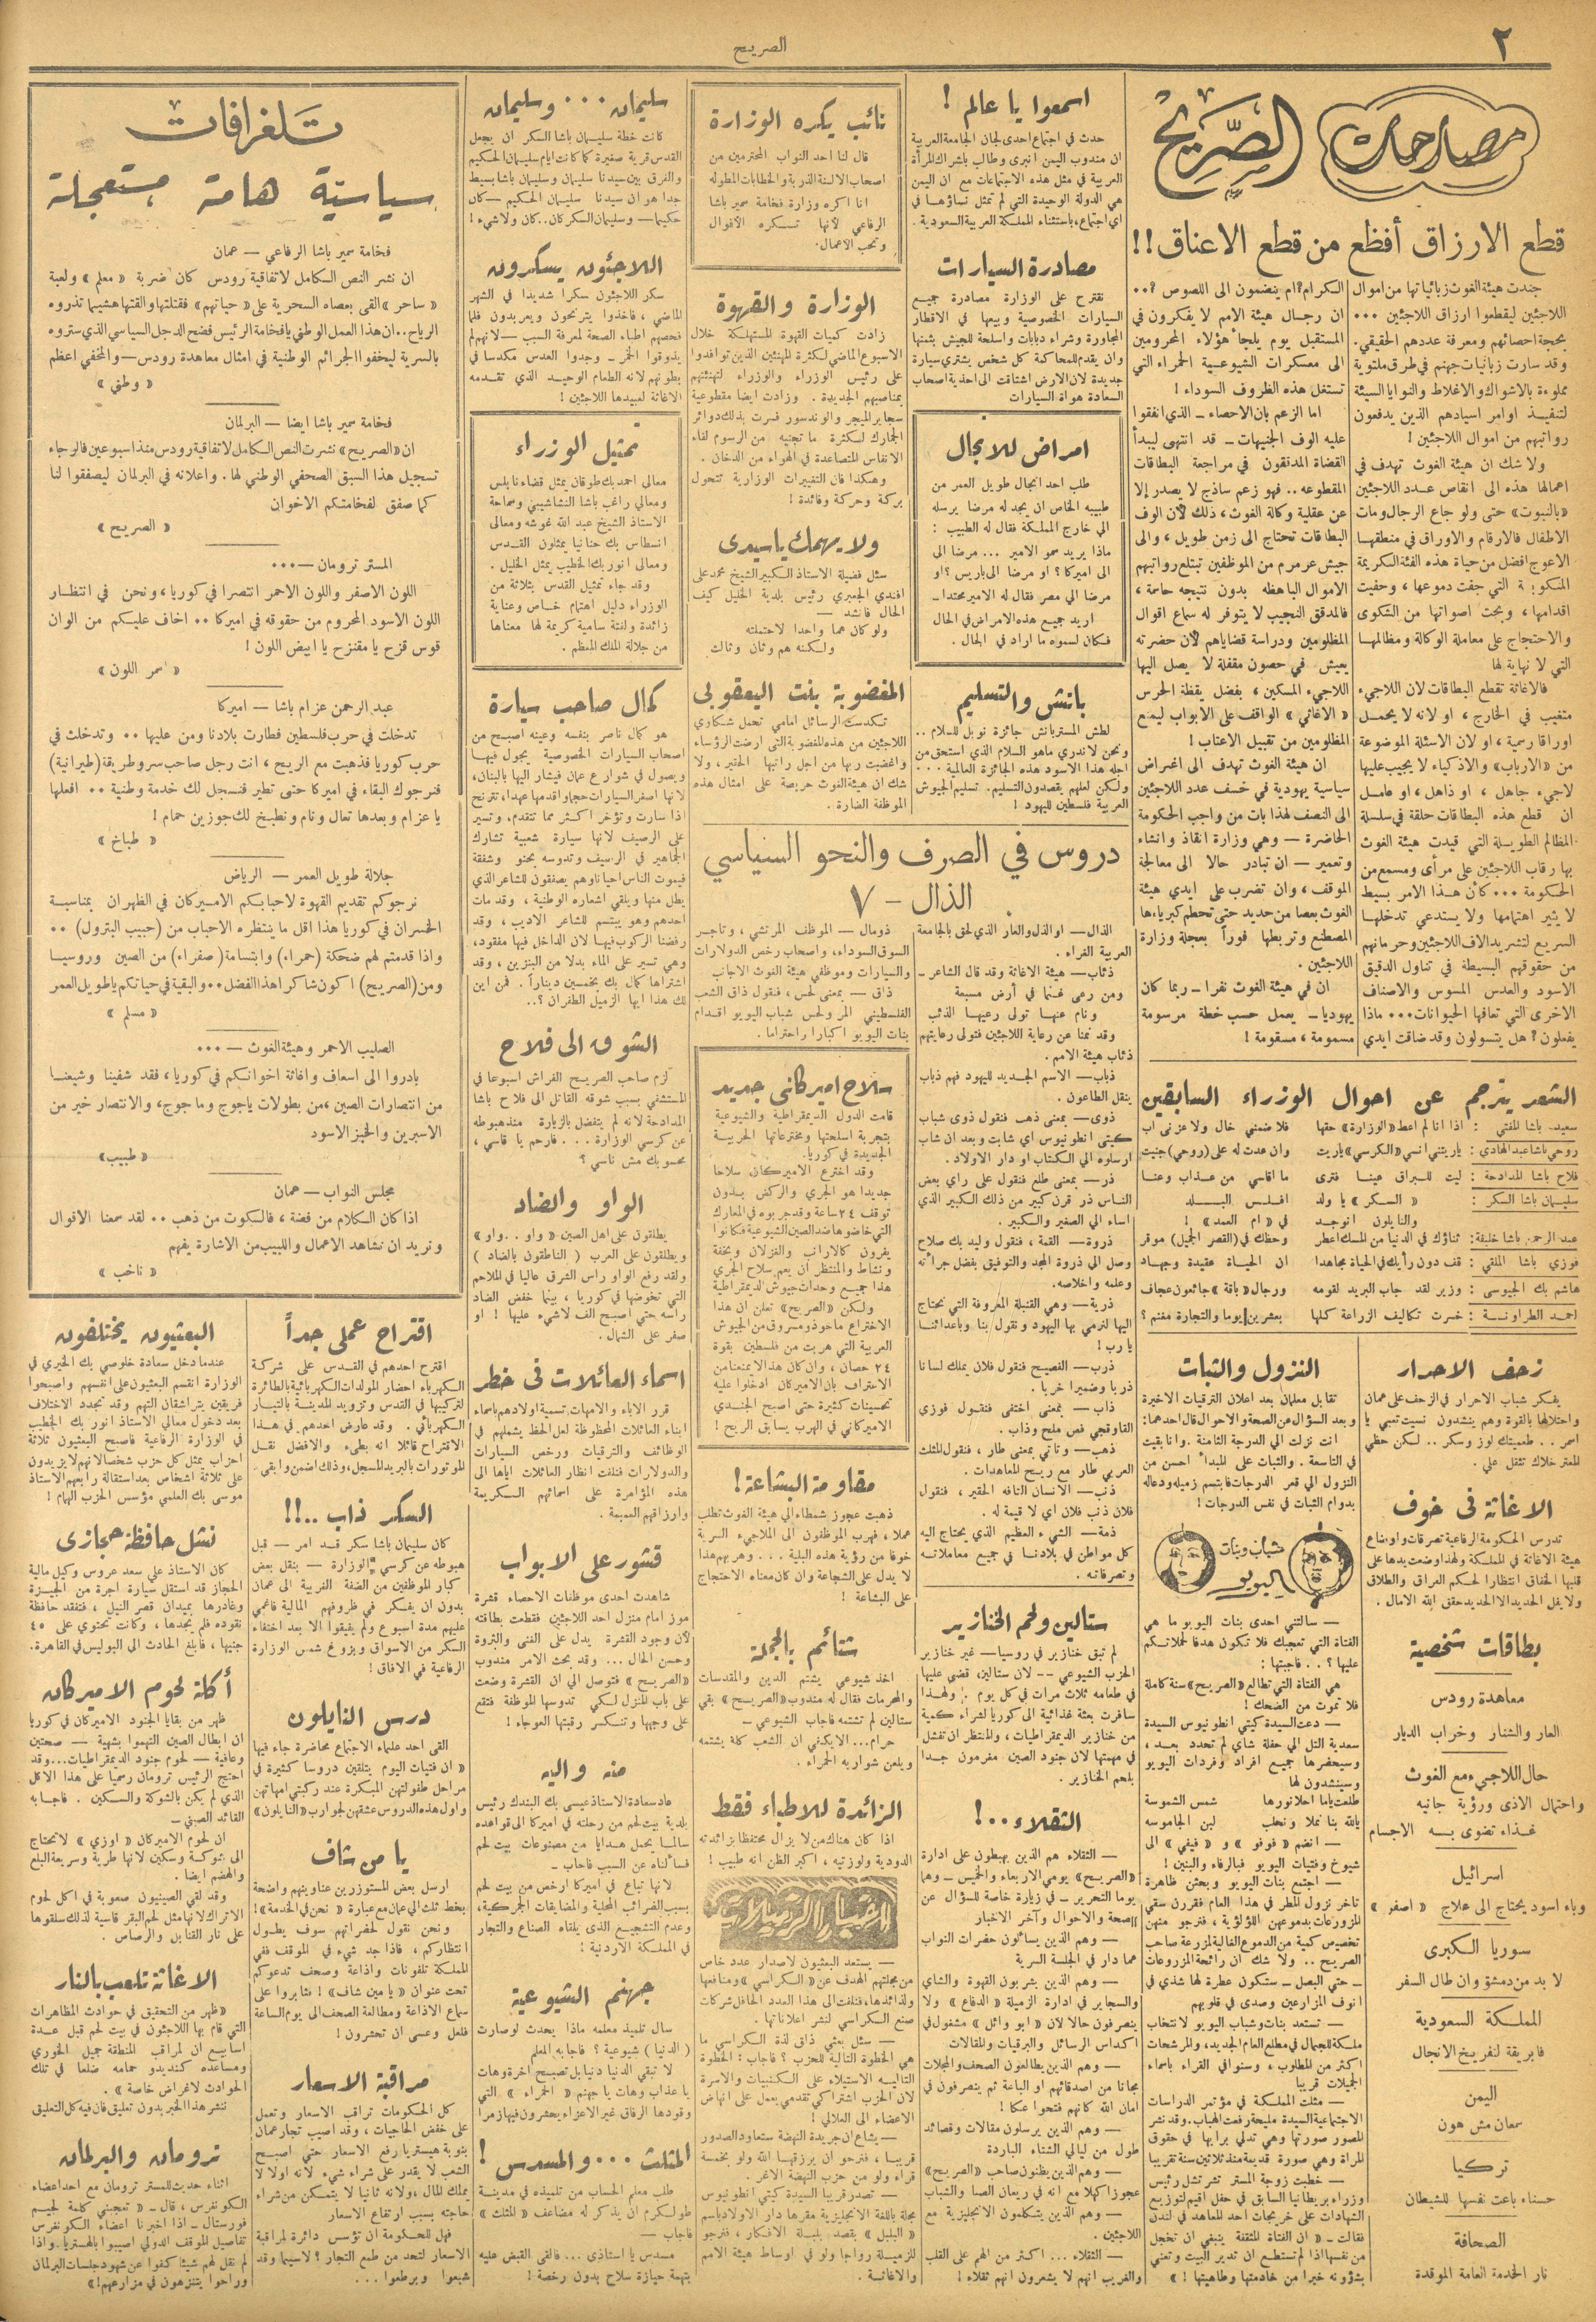 ٢
الصريح
مصارحات الصريح
قطع الارزاق أفظع من قطع الاعناق!!
جندت هيئة الغوث زبانياتها من اموال
اللاجئين ليقطعوا ارزاق اللاجئين ...
بحجة احصائهم ومعرفة عددهم الحقيقي.
وقد سارت زبانيات جهنم في طرق ملتوية
مملوءة بالاشواك والاغلاط والنوايا السيئة
لتنفيذ اوامر اسيادهم الذين يدفعون
رواتبهم من اموال اللاجئين !
ولا شك ان هيئة الغوث تهدف في
اعمالها هذه الى انقاص عدد اللاجئين
«بالنبوت» حتى ولو جاع الرجال ومات
الاطفال فالارقام والاوراق في منطقها
الاعوج افضل من حياة هذه الفئة الكريمة
المنكوبة التي جفت دموعها ، وحفيت
اقدامها ، وبحت اصواتها من الشكوى
والاحتجاج على معاملة الوكالة ومظالمها
التي لا نهاية لها
فالاغاثة تقطع البطاقات لان اللاجيء
متغيب في الخارج ، او لانه لا يحمل
اوراقا رسمية ، او لان الاسئلة الموضوعة
من «الارباب» والاذكياء لا يجيب عليها
لاجيء جاهل ، او ذاهل ، او عامل
ان قطع هذه البطاقات حلقة في سلسلة
المظالم الطويلة التي قيدت هيئة الغوث
بها رقاب اللاجئين على مرأى ومسمع من
الحكومة ... كأن هذا الامر بسيط
لا يثير اهتمامها ولا يستدعي تدخلها
السريع لتشريد الاف اللاجئين وحرمانهم
من حقوقهم البسيطة في تناول الدقيق
الاسود والعدس المسوس والاصناف
الاخرى التي تعافها الحيوانات ... ماذا
يفعلون ؟ هل يتسولون وقد ضاقت ايدي
الكرام ؟ ام ينضمون الى اللصوص ؟..
ان رجال هيئة الامم لا يفكرون في
المستقبل يوم يلجأ هؤلاء المحرومين
الى معسكرات الشيوعية الحمراء التي
تستغل هذه الظروف السوداء !
اما الزعم بان الاحصاء ــ الذي انفقوا
عليه الوف الجنيهات ــ قد انتهى ليبدأ
القضاة المدققون في مراجعة البطاقات
المقطوعه .. فهو زعم ساذج لا يصدر إلا
عن عقلية وكالة الغوث ، ذلك لأن الوف
البطاقات تحتاج الى زمن طويل ، والى
جيش عرمرم من الموظفين تبتلع رواتبهم
الاموال الباهظه بدون نتيجه حاسمة ،
فالمدقق النجيب لا يتوفر له سماع اقوال
المظلومين ودراسة قضاياهم لأن حضرته
يعيش في حصون مقفلة لا يصل اليها
اللاجيء المسكين ، بفضل يقظة الحرس
« الاغاثي » الواقف على الابواب ليمنع
المظلومين من تقبيل الاعتاب !
ان هيئة الغوث تهدف الى اغراض
سياسية يهودية في خسف عدد اللاجئين
الى النصف لهذا بات من واجب الحكومة
الحاضرة — وهي وزارة انقاذ وانشاء
وتعمير — ان تبادر حالا الى معالجة
الموقف ، وان تضرب على ايدي هيئة
الغوث بعصا من حديد حتى تحطم كبرياءها
المصطنع وتربطها فوراً بعجلة وزارة
اللاجئين .
ان في هيئة الغوث نفرا ــ ربما كان
يهوديا ــ يعمل حسب خطة مرسومة
مسمومة ، مسقومة !
الشعر يترجم عن احوال الوزراء السابقين
سعيد باشا المفتي : اذا انا لم اعط «الوزارة» حقها فلا ضمني خال ولا عزني اب
روحي باشا عبد الهادي : ياريتني انسى «الكرسي» ياريت وان عدت له على (روحي) جنيت
فلاح باشا المدادحة : ليت للبراق عينا فترى ما اقاسي من عذاب وعنا
سليمان باشا السكر : « السكر » يا ولد افلس البلد
والنايلون انوجد في « ام العمد » !
عبد الرحمن باشا خليفة: ثناؤك في الدنيا من المسك اعطر وحظك في (القصر الجميل) موقر
فوزي باشا الملقي : قف دون رأيك في الحياة مجاهدا ان الحياة عقيدة وجهاد
هاشم بك الجيوسي : وزير لقد جاب البريد لقومه ورجال «باقة» جائعون عجاف
احمد الطراونة : خسرت تكاليف الزراعة كلها بعشرين يوما والتجارة مغنم ؟
زحف الاحرار
يفكر شباب الاحرار في الزحف على عمان
واحتلالها بالقوة وهم ينشدون نسيت تعبي يا
اسمر .. طعميتك لوز وسكر .. لكن حظي
المعتر خلاك تثقل علي .
الاغاثة في خوف
تدرس الحكومة الرفاعية تصرفات واوضاع
هيئة الاغاثة في المملكة ولهذا وضعت يدها على
قلبها الخفاق انتظارا لحكم العراق والطلاق
ولا يفل الحديد الا الحديد حقق الله الامال .
بطاقات شخصية
معاهدة رودس
العار والشنار وخراب الديار
حال اللاجيء مع الغوث
واحتمال الاذى ورؤية جانيه
غذاء تضوى به الاجسام
اسرائيل
وباء اسود يحتاج الى علاج « اصفر »
سوريا الكبرى
لا بد من دمشق وان طال السفر
المملكة السعودية
فابريقة لتفريخ الانجال
اليمن
سمعان مش هون
تركيا
حسناء باعت نفسها للشيطان
الصحافة
نار الخدمة العامة الموقدة
النزول والثبات
تقابل معلمان بعد اعلان الترقيات الاخيرة
وبعد السؤال عن الصحة والاحوال قال احدهما:
انت نزلت الى الدرجة الثامنة . وانا بقيت
في التاسعة . والثبات على المبدأ احسن من
النزول الى قعر الدرجات فابتسم زميله ودعاله
بدوام الثبات في نفس الدرجات !
شباب وبنات اليويو
— سالتني احدى بنات اليويو ما هي
الفتاة التي تعجبك فلا تكون هدفا لحملاتكم
عليها ؟ .. فاجبتها :
هي الفتاة التي تطالع «الصريح» سنة كاملة
فلا تموت من الضحك !
— دعت السيدة كيتي انطونيوس السيدة
سعدية التل الى حفلة شاي لم تحدد بعد ،
وسيحضرها جميع افراد وفردات اليويو
وسينشدون لها
طلعت ياما احلا نورها شمس الشموسة
يالله بنا نملا ونحلب لبن الجاموسه
— انضم « فوفو » و « فيفي » الى
شيوخ وفتيات اليويو فبالرفاء والبنين !
— اجتمع بنات اليويو وبحثن ظاهرة
تاخر نزول المطر في هذا العام فقررن سقي
المزروعات بدموعهن اللؤلؤية ، فنرجو منهن
تخصيص كمية من الدموع الغالية لمزرعة صاحب
الصريح .. ولا شك ان رائحة المزروعات
— حتى البصل — ستكون عطرة لها شذي في
انوف المزارعين وصدى في قلوبهم
— تستعد بنات وشباب اليويو لانتخاب
ملكة للجمال في مطلع العام الجديد، والمرشحات
اكثر من المطلوب، وسنوافي القراء باسماء
الجميلات قريبا
— مثلت المملكة في مؤتمر الدراسات
الاجتماعية السيدة مليحة رفعت الهباب. وقد نشر
المصور صورتها وهي تدلي برايها في حقوق
المراة وهي صورة قديمة منذ ثلاثين سنة تقريبا
— خطبت زوجة المستر تشرتشل رئيس
وزراء بريطانيا السابق في حفل اقيم لتوزيع
الشهادات على خريجات احد المعاهد في لندن
فقالت ــ «ان الفتاة المثقفة ينبغي ان تخجل
من نفسها اذا لم تستطع ان تدير البيت وتعني
بشؤونه خيرا من خادمتها وطاهيتها ! »
اسمعوا يا عالم !
حدث في اجتماع احدى لجان الجامعة العربية
ان مندوب اليمن انبرى وطالب باشراك المرأة
العربية في مثل هذه الاجتماعات مع ان اليمن
هي الدولة الوحيدة التي لم تمثل نساؤها في
اي اجتماع، باستثناء المملكة العربية السعودية .
مصادرة السيارات
نقترح على الوزارة مصادرة جميع
السيارات الخصوصية وبيعها في الاقطار
المجاورة وشراء دبابات واسلحة للجيش بثمنها
وان يقدم للمحاكمة كل شخص يشتري سيارة
جديدة لان الارض اشتاقت الى احذية اصحاب
السعادة هواة السيارات
امراض للانجال
طلب احد انجال طويل العمر من
طبيبه الخاص ان يجد له مرضا يرسله
الى خارج المملكة فقال له الطبيب :
ماذا يريد سمو الامير ... مرضا الى
الى اميركا ؟ او مرضا الى باريس ؟ او
مرضا الى مصر فقال له الامير محتدا ــ
اريد جميع هذه الامراض في الحال
فكان لسموه ما اراد في الحال .
بانش والتسليم
لطش المستر بانش جائزة نوبل للسلام ..
ونحن لا ندري ماهو السلام الذي استحق من
اجله هذا الاسود هذه الجائزة العالمية ...
ولكن لعلهم يقصدون التسليم. تسليم الجيوش
العربية فلسطين لليهود !
دروس في الصرف والنحو السياسي
الذال - ٧
الذال — او الذل والعار الذي لحق بالجامعة
العربية الغراء .
ذئاب — هيئة الاغاثة وقد قال الشاعر ــ
ومن رعى غنما في أرض مسبعة
ونام عنها تولى رعيها الذئب
وقد نمنا عن رعاية اللاجئين فتولى رعايتهم
ذئاب هيئة الامم .
ذباب — الاسم الجديد لليهود فهم ذباب
ينقل الطاعون .
ذوى — بمعنى ذهب فنقول ذوى شباب
كيتى انطونيوس اي شابت وبعد ان شاب
ارسلوه الى الكتاب او دار الاولاد .
ذر — بمعنى طلع فنقول على راي بعض
الناس ذر قرن كبير من ذلك الكبير الذي
اساء الى الصغير والكبير .
ذروة — القمة ، فنقول وليد بك صلاح
وصل الى ذروة المجد والتوفيق بفضل جراته
وعلمه واخلاصه.
ذرية — وهي القنبلة المعروفة التي نحتاج
اليها لنرمي بها اليهود ونقول بنا وباعدائنا
يا رب !
ذرب — الفصيح فنقول فلان يملك لسانا
ذربا وضميرا خربا .
ذاب — بمعنى اختفى فنقول فوزي
القاوقجي فص ملح وذاب .
ذهب — وتاتي بمعنى طار ، فنقول المثلث
العربي طار مع ريح المعاهدات .
ذنب — الانسان التافه الحقير ، فنقول
فلان ذنب فلان اي لا قيمة له .
ذمة — الشيء العظيم الذي يحتاج اليه
كل مواطن في بلادنا في جميع معاملاته
وتصرفاته .
ذومال — الموظف المرتشي ، وتاجر
السوق السوداء، واصحاب رخص الدولارات
والسيارات وموظفي هيئة الغوث الاجانب
ذاق — بمعنى لحس ، فنقول ذاق الشعب
الفلسطيني المر ولحس شباب اليويو اقدام
بنات اليويو اكبارا واحتراما .
ستالين ولحم الخنازير
لم تبق خنازير في روسيا — غير خنازير
الحزب الشيوعي -- لان ستالين، قضى عليها
في طعامه ثلاث مرات في كل يوم . ولهذا
سافرت بعثة غذائية الى كوريا لشراء كمية
من خنازير الديمقراطيات ، والمنتظر ان تفشل
في مهمتها لان جنود الصين مغرمون جدا
بلحم الخنازير .
الثقلاء ..!
— الثقلاء هم الذين يهبطون على ادارة
«الصريح» يومي الاربعاء والخميس ــ وهما
يوما التحرير ــ في زيارة خاصة للسؤال عن
الصحة والاحوال وآخر الاخبار
— وهم الذين يسألون حضرات النواب
عما دار في الجلسة السرية
— وهم الذين يشربون القهوة والشاي
والسجاير في ادارة الزميلة « الدفاع » ولا
ينصرفون حالا لان « ابو وائل » مشغول في
اكداس الرسائل والبرقيات والمقالات
— وهم الذين يطالعون الصحف والمجلات
مجانا من اصدقائهم او الباعة ثم ينصرفون في
امان الله كانهم فتحوا عكا !
— وهم الذين يرسلون مقالات وقصائد
طول من ليالي الشتاء الباردة
— وهم الذين يظنون صاحب «الصريح»
عجوزا كهلا مع انه في ريعان الصبا والشباب
— وهم الذين يتكلمون الانجليزية مع
اللاجئين .
— الثقلاء ... اكثر من الهم على القلب
والغريب انهم لا يشعرون انهم ثقلاء !
نائب يكره الوزارة
قال لنا احد النواب المحترمين من
اصحاب الالسنة الذرية والخطابات المطولة
انا اكره وزارة فخامة سمير باشا
الرفاعي لأنها تكره الأقوال
وتحب الاعمال .
الوزارة والقهوة
زادت كميات القهوة المستهلكة خلال
الاسبوع الماضي لكثرة المهنئين الذين توافدوا
على رئيس الوزراء والوزراء لتهنئتهم
بمناصبهم الجديدة . وزادت ايضا مقطوعية
سجاير الميجر والوندسور فسرت بذلك دوائر
الجمارك لكثرة ما تجنيه من الرسوم لقاء
الانفاس المتصاعدة في الهواء من الدخان .
وهكذا فان التغييرات الوزارية تتحول
بركة وحركة وفائدة !
ولا يهمك ياسيدى
سئل فضيلة الاستاذ الكبير الشيخ محمد علي
افندي الجعبري رئيس بلدية الخليل كيف
الحال فانشد —
ولو كان هما واحدا لاحتملته
ولكنه هم وثان وثالث
المغضوبة بنت اليعقوبى
تكدست الرسائل امامي تحمل شكاوي
اللاجئين من هذه المغضوبة التي ارضت الرؤساء
واغضبت ربها من اجل راتبها الحقير ، ولا
شك ان هيئة الغوث حريصة على امثال هذه
الموظفة الضارة .
سلاح اميركانى جديد
قامت الدول الديمقراطية والشيوعية
بتجربة اسلحتها ومخترعاتها الحربية
الجديدة في كوريا.
وقد اخترع الاميركان سلاحا
جديدا هو الجري والركض بدون
توقف ٢٤ ساعة وقد جربوه في المعارك
التي خاضوها ضد الصين الشيوعية فكانوا
يفرون كالارانب والغزلان وبخفة
ونشاط والمنتظر ان يعم سلاح الجري
هذا جميع وحدات جيوش الديمقراطية
ولكن «الصريح» تعلن ان هذا
الاختراع ماخوذ ومسروق من الجيوش
العربية التي هربت من فلسطين بقوة
٢٤ حصان ، وان كان هذا لا يمنعنا من
الاعتراف بان الاميركان ادخلوا عليه
تحسينات كثيرة حتى اصبح الجندي
الاميركاني في الهرب يسابق الريح !
مقاومة البشاعة !
ذهبت عجوز شمطاء الى هيئة الغوث تطلب
عملا ، فهرب الموظفون الى الملاجيء السرية
خوفا من رؤية هذه البلية ... وهربهم هذا
لا يدل على الشجاعة وان كان معناه الاحتجاج
على البشاعة !
شتائم بالجملة
اخذ شيوعي يشتم الدين والمقدسات
والمحرمات فقال له مندوب «الصريح» بقي
ستالين لم تشتمه فاجاب الشيوعي —
حرام ... الايكفي ان الشعب كله يشتمه
ويلعن شواربه الحمراء .
الزائدة للاطباء فقط
اذا كان هناك من لا يزال محتفظا بزائدته
الدودية ولوزتيه ، اكبر الظن انه طبيب !
اخبار الزميلات
— يستعد البعثيون لاصدار عدد خاص
من مجلتهم الهدف عن «الكراسي» ومنافعها
ولذائذها، فنلفت الى هذا العدد الحافل شركات
صنع الكراسي لنشر اعلاناتها .
— سئل بعثي ذاق لذة الكراسي ما
هي الخطوة التالية للحزب ؟ فاجاب : الخطوة
التاليه الاستيلاء على الكنبيات والاسرة
لان الحزب اشتراكي تقدمي يعمل على انهاض
الاعضاء الى العلالي !
— يشاع ان جريدة النهضة ستعاود الصدور
قريبا ، فنرجو ان يرزقها الله ولو بخمسة
قراء ولو من حزب النهضة الاغر .
— تصدر قريبا السيدة كيتي انطونيوس
مجلة باللغة الانجليزية مقرها دار الاولاد باسم
« البلبل » بقصد بلبلة الافكار ، فنرجو
للزميلة رواجا ولو في اوساط هيئة الامم
والاغاثة .
سليمان ... وسليمان
كانت خطة سليمان باشا السكر ان يجعل
القدس قرية صغيرة كما كانت ايام سليمان الحكيم
والفرق بين سيدنا سليمان وسليمان باشا بسيط
جدا هو ان سيدنا سليمان الحكيم — كان
حكيما — وسليمان السكر كان .. كان ولا شيء !
اللاجئون يسكرون
سكر اللاجئون سكرا شديدا في الشهر
الماضي ، فاخذوا يترنحون ويعربدون فلما
فحصهم اطباء الصحة لمعرفة السبب — لانهم لم
يذوقوا الخمر ــ وجدوا العدس مكدسا في
بطونهم لانه الطعام الوحيد الذي تقدمه
الاغاثة لعبيدها اللاجئين !
تمثيل الوزراء
معالي احمد بك طوقان يمثل قضاء نابلس
ومعالي راغب باشا النشاشيبي وسماحة
الاستاذ الشيخ عبد الله غوشه ومعالي
انسطاس بك حنانيا يمثلون القدس
ومعالي انور بك الخطيب يمثل الخليل .
وقد جاء تمثيل القدس بثلاثة من
الوزراء دليل اهتمام خاص وعناية
زائدة ولفتة سامية كريمة لها معناها
من جلالة الملك المعظم .
كمال صاحب سيارة
هو كمال ناصر بنفسه وعينه اصبح من
اصحاب السيارات الخصوصية يجول فيها
ويصول في شوارع عمان فيشار اليها بالبنان،
لانها اصغر السيارات حجما واقدمها عهدا، تترنح
اذا سارت وتؤخر اكثر مما تتقدم، وتسير
على الرصيف لانها سيارة شعبية تشارك
الجماهير في الرصيف وتدوسه بحنو وشفقة
فيموت الناس احيانا وهم يصفقون للشاعر الذي
يطل منها ويلقي اشعاره الوطنية ، وقد مات
احدهم وهو يبتسم للشاعر الاديب ، وقد
رفضنا الركوب فيها لان الداخل فيها مفقود،
وهي تسير على الماء بدلا من البنزين ، وقد
اشتراها كمال بك بخمسين ديناراً . فمن اين
لك هذا ايها الزميل الطفران ؟..
الشوق الى فلاح
لزم صاحب الصريح الفراش اسبوعا في
المستشفى بسبب شوقه القاتل الى فلاح باشا
المدادحة لانه لم يتفضل بالزيارة منذ هبوطه
عن كرسي الوزارة ... فارحم يا قاسي ،
محسوبك مش ناسي ؟
الواو والضاد
يطلقون على اهل الصين «واو .. واو»
ويطلقون على العرب ( الناطقون بالضاد )
ولقد رفع الواو راس الشرق عاليا في الملاحم
التي تخوضها في كوريا ، بينما خفض الضاد
راسه حتى اصبح الف لاشيء عليها ! او
صفر على الشمال .
اسماء العائلات فى خطر
قرر الاباء والامهات تسمية اولادهم باسماء
ابناء العائلات المحظوظة لعل الحظ يشملهم في
الوظائف والترقيات ورخص السيارات
والدولارات فنلفت انظار العائلات اياها الى
هذه المؤامرة على اسمائهم الكريمة
وارزاقهم العميمة .
قشور على الابواب
شاهدت احدى موظفات الاحصاء قشرة
موز امام منزل احد اللاجئين فقطعت بطاقته
لأن وجود القشرة يدل على الغنى والثروة
وحسن الحال ... وقد بحث الامر مندوب
«الصريح» فتوصل الى ان القشرة وضعت
على باب المنزل لكي تدوسها الموظفة فتقع
على وجهها وتنكسر رقبتها العوجاء !
منه واليه
عاد سعادة الاستاذ عيسى بك البندك رئيس
بلدية بيت لحم من رحلته في اميركا الى قواعده
سالما يحمل هدايا من مصنوعات بيت لحم
فسألناه عن السبب فاجاب ــ
لانها تباع في اميركا ارخص من بيت لحم
بسبب الضرائب المحلية والمضايقات الجمركية،
وعدم التشجيع الذي يلقاه الصناع والتجار
في المملكة الاردنية !
جهنم الشيوعية
سال تلميذ معلمه ماذا يحدث لو صارت
( الدنيا ) شيوعية ؟ فاجابه المعلم
لا تبقى الدنيا دنيا بل تصبح اخرة وهات
يا عذاب وهات يا جهنم « الحمراء » التي
وقودها الرفاق غير الاعزاء يحشرون فيها زمرا
المثلث ... والمسدس !
طلب معلم الحساب من تلميذه في مدينة
طولكرم ان يذكر له مضاعف « المثلث »
فاجاب —
مسدس يا استاذي ... فالقى القبض عليه
بتهمة حيازة سلاح بدون رخصة !
تلغرافات
سياسية هامة مستعجلة
فخامة سمير باشا الرفاعي — عمان
ان نشر النص الكامل لاتفاقية رودس كان ضربة « معلم » ولعبة
« ساحر » القى بعصاه السحرية على « حياتهم » فقتلتها والقتها هشيما تذروه
الرياح .. ان هذا العمل الوطني يا فخامة الرئيس فضح الدجل السياسي الذي ستروه
بالسرية ليخفوا الجرائم الوطنية في امثال معاهدة رودس — والمخفي اعظم
« وطني »
فخامة سمير باشا ايضا — البرلمان
ان «الصريح» نشرت النص الكامل لاتفاقية رودس منذ اسبوعين فالرجاء
تسجيل هذا السبق الصحفي الوطني لها . واعلانه في البرلمان ليصفقوا لنا
كما صفق لفخامتكم الاخوان
« الصريح »
المستر ترومان — ...
اللون الاصفر واللون الاحمر انتصرا في كوريا ، ونحن في انتظار
اللون الاسود المحروم من حقوقه في اميركا .. اخاف عليكم من الوان
قوس قزح يا مقنزح يا ابيض اللون !
« اسمر اللون »
عبد الرحمن عزام باشا — اميركا
تدخلت في حرب فلسطين فطارت بلادنا ومن عليها .. وتدخلت في
حرب كوريا فذهبت مع الريح ، انت رجل صاحب سر وطريقة (طيرانية)
فنرجوك البقاء في اميركا حتى تطير فنسجل لك خدمة وطنية .. افعلها
يا عزام وبعدها تعال ونام ونطبخ لك جوزين حمام !
« طباخ »
جلالة طويل العمر — الرياض
نرجوكم تقديم القهوة لاحبابكم الاميركان في الظهران بمناسبة
الخسران في كوريا هذا اقل ما ينتظره الاحباب من (حبيب البترول) ..
واذا قدمتم لهم ضحكة (حمراء) وابتسامة (صفراء) من الصين وروسيا
ومن (الصريح) اكون شاكرا هذا الفضل .. والبقية في حياتكم يا طويل العمر
« مسلم »
الصليب الاحمر وهيئة الغوث — ...
بادروا الى اسعاف واغاثة اخوانكم في كوريا ، فقد شفينا وشبعنا
من انتصارات الصين ، من بطولات ياجوج وماجوج، والانتصار خير من
الاسبرين والخبز الاسود
« طبيب »
مجلس النواب — عمان
اذا كان الكلام من فضة ، فالسكوت من ذهب .. لقد سمعنا الاقوال
ونريد ان نشاهد الاعمال واللبيب من الاشارة يفهم
« ناخب »
اقتراح عملى جداً
اقترح احدهم في القدس على شركة
الكهرباء احضار المولدات الكهربائية بالطائرة
لتركيبها في القدس وتزويد المدينة بالتيار
الكهربائي . وقد عارض احدهم في هذا
الاقتراح قائلا انه بطيء والافضل نقل
الموتورات بالبريد المسجل، وذلك اضمن وابقى .
السكر ذاب ..!!
كان سليمان باشا سكر قد امر — قبل
هبوطه عن كرسي الوزارة — بنقل بعض
كبار الموظفين من الضفة الغربية الى عمان
بدون ان يفكر في ظروفهم المالية فاغمي
عليهم مدة اسبوع ولم يفيقوا الا بعد اختفاء
السكر من الاسواق وبزوغ شمس الوزارة
الرفاعية في الافاق !
درس النايلون
القى احد علماء الاجتماع محاضرة جاء فيها
« ان فتيات اليوم يتلقين دروسا كثيرة في
مراحل طفولتهن المبكرة عند ركبتي امهاتهن
واول هذه الدروس عشقهن لجوارب «النايلون»
يا من شاف
ارسل بعض المستوزرين عناوينهم واضحة
بخط ثلث الى عمان مع عبارة « نحن في الخدمة» !
ونحن نقول لحضراتهم سوف يطول
انتظاركم ، فاذا جد شيء في الموقف ففي
المملكة تلفونات واذاعة وصحف تدعوكم
تحت عنوان « يا مين شاف» ! فثابروا على
سماع الاذاعة ومطالعة الصحف الى يوم الساعة
فلعل وعسى ان تحشرون !
مراقبة الاسعار
كل الحكومات تراقب الاسعار وتعمل
على خفض الحاجيات ، وقد اصيب تجار عمان
بنوبة هيستريا رفع الاسعار حتى اصبح
الشعب لا يقدر على شراء شيء لأنه اولا لا
يملك المال ، ولانه ثانيا لا يتمكن من شراء
حاجته بسبب ارتفاع الاسعار
فهل للحكومة ان تؤسس دائرة لمراقبة
الاسعار لتحد من طمع التجار ؟ لاسيما وقد
شبعوا وبرطعوا ...
البعثيون يختلفون
عندما دخل سعادة خلوصي بك الخيري في
الوزارة انقسم البعثيون على انفسهم واصبحوا
فريقين يتراشقان التهم وقد تجدد الاختلاف
بعد دخول معالي الاستاذ انور بك الخطيب
في الوزارة الرفاعية فاصبح البعثيون ثلاثة
احزاب يمثل كل حزب شخصا لانهم لا يزيدون
على ثلاثة اشخاص بعد استقالة رابعهم الاستاذ
موسى بك العلمي مؤسس الحزب الهمام !
نشل حافظة حجازى
كان الاستاذ علي سعد عروس وكيل مالية
الحجاز قد استقل سيارة اجرة من الجيزة
وغادرها بميدان قصر النيل ، فتفقد حافظة
نقوده فلم يجدها ، وكانت تحتوي على ٤٥
جنيها ، فابلغ الحادث الى البوليس في القاهرة.
أكلة لحوم الاميركان
ظهر من بقايا الجنود الاميركان في كوريا
ان ابطال الصين التهموا بشهية — صحتين
وعافية — لحوم جنود الديمقراطيات ... وقد
احتج الرئيس ترومان رسميا على هذا الاكل
الذي لم يكن بالشوكة والسكين . فاجابه
القائد الصيني —
ان لحوم الاميركان « اوزي » لا تحتاج
الى شوكة وسكين لانها طرية وسريعة البلع
والهضم ايضا .
وقد لقي الصينيون صعوبة في اكل لحوم
الاتراك لانها مثل لحم البقر قاسية لذلك سلقوها
على نار القنابل والرصاص .
الاغاثة تلعب بالنار
«ظهر من التحقيق في حوادث المظاهرات
التي قام بها اللاجئون في بيت لحم قبل عدة
اسابيع ان لمراقب المنطقة جميل الخوري
ومساعده كنديدو حمامه ضلعا في تلك
الحوادث لاغراض خاصة » .
ننشر هذا الخبر بدون تعليق فان فيه كل التعليق
ترومان والبرلمان
اثناء حديث للمستر ترومان مع احد اعضاء
الكونغرس ، قال ــ « تعجبني كلمة لجيم
فورستال ــ اذا اخبرنا اعضاء الكونغرس
تفاصيل الموقف الدولي اصيبوا بالهستريا. واذا
لم نقل لهم شيئا كفوا عن شهود جلسات البرلمان
وراحوا يتنزهون في مزارعهم!»